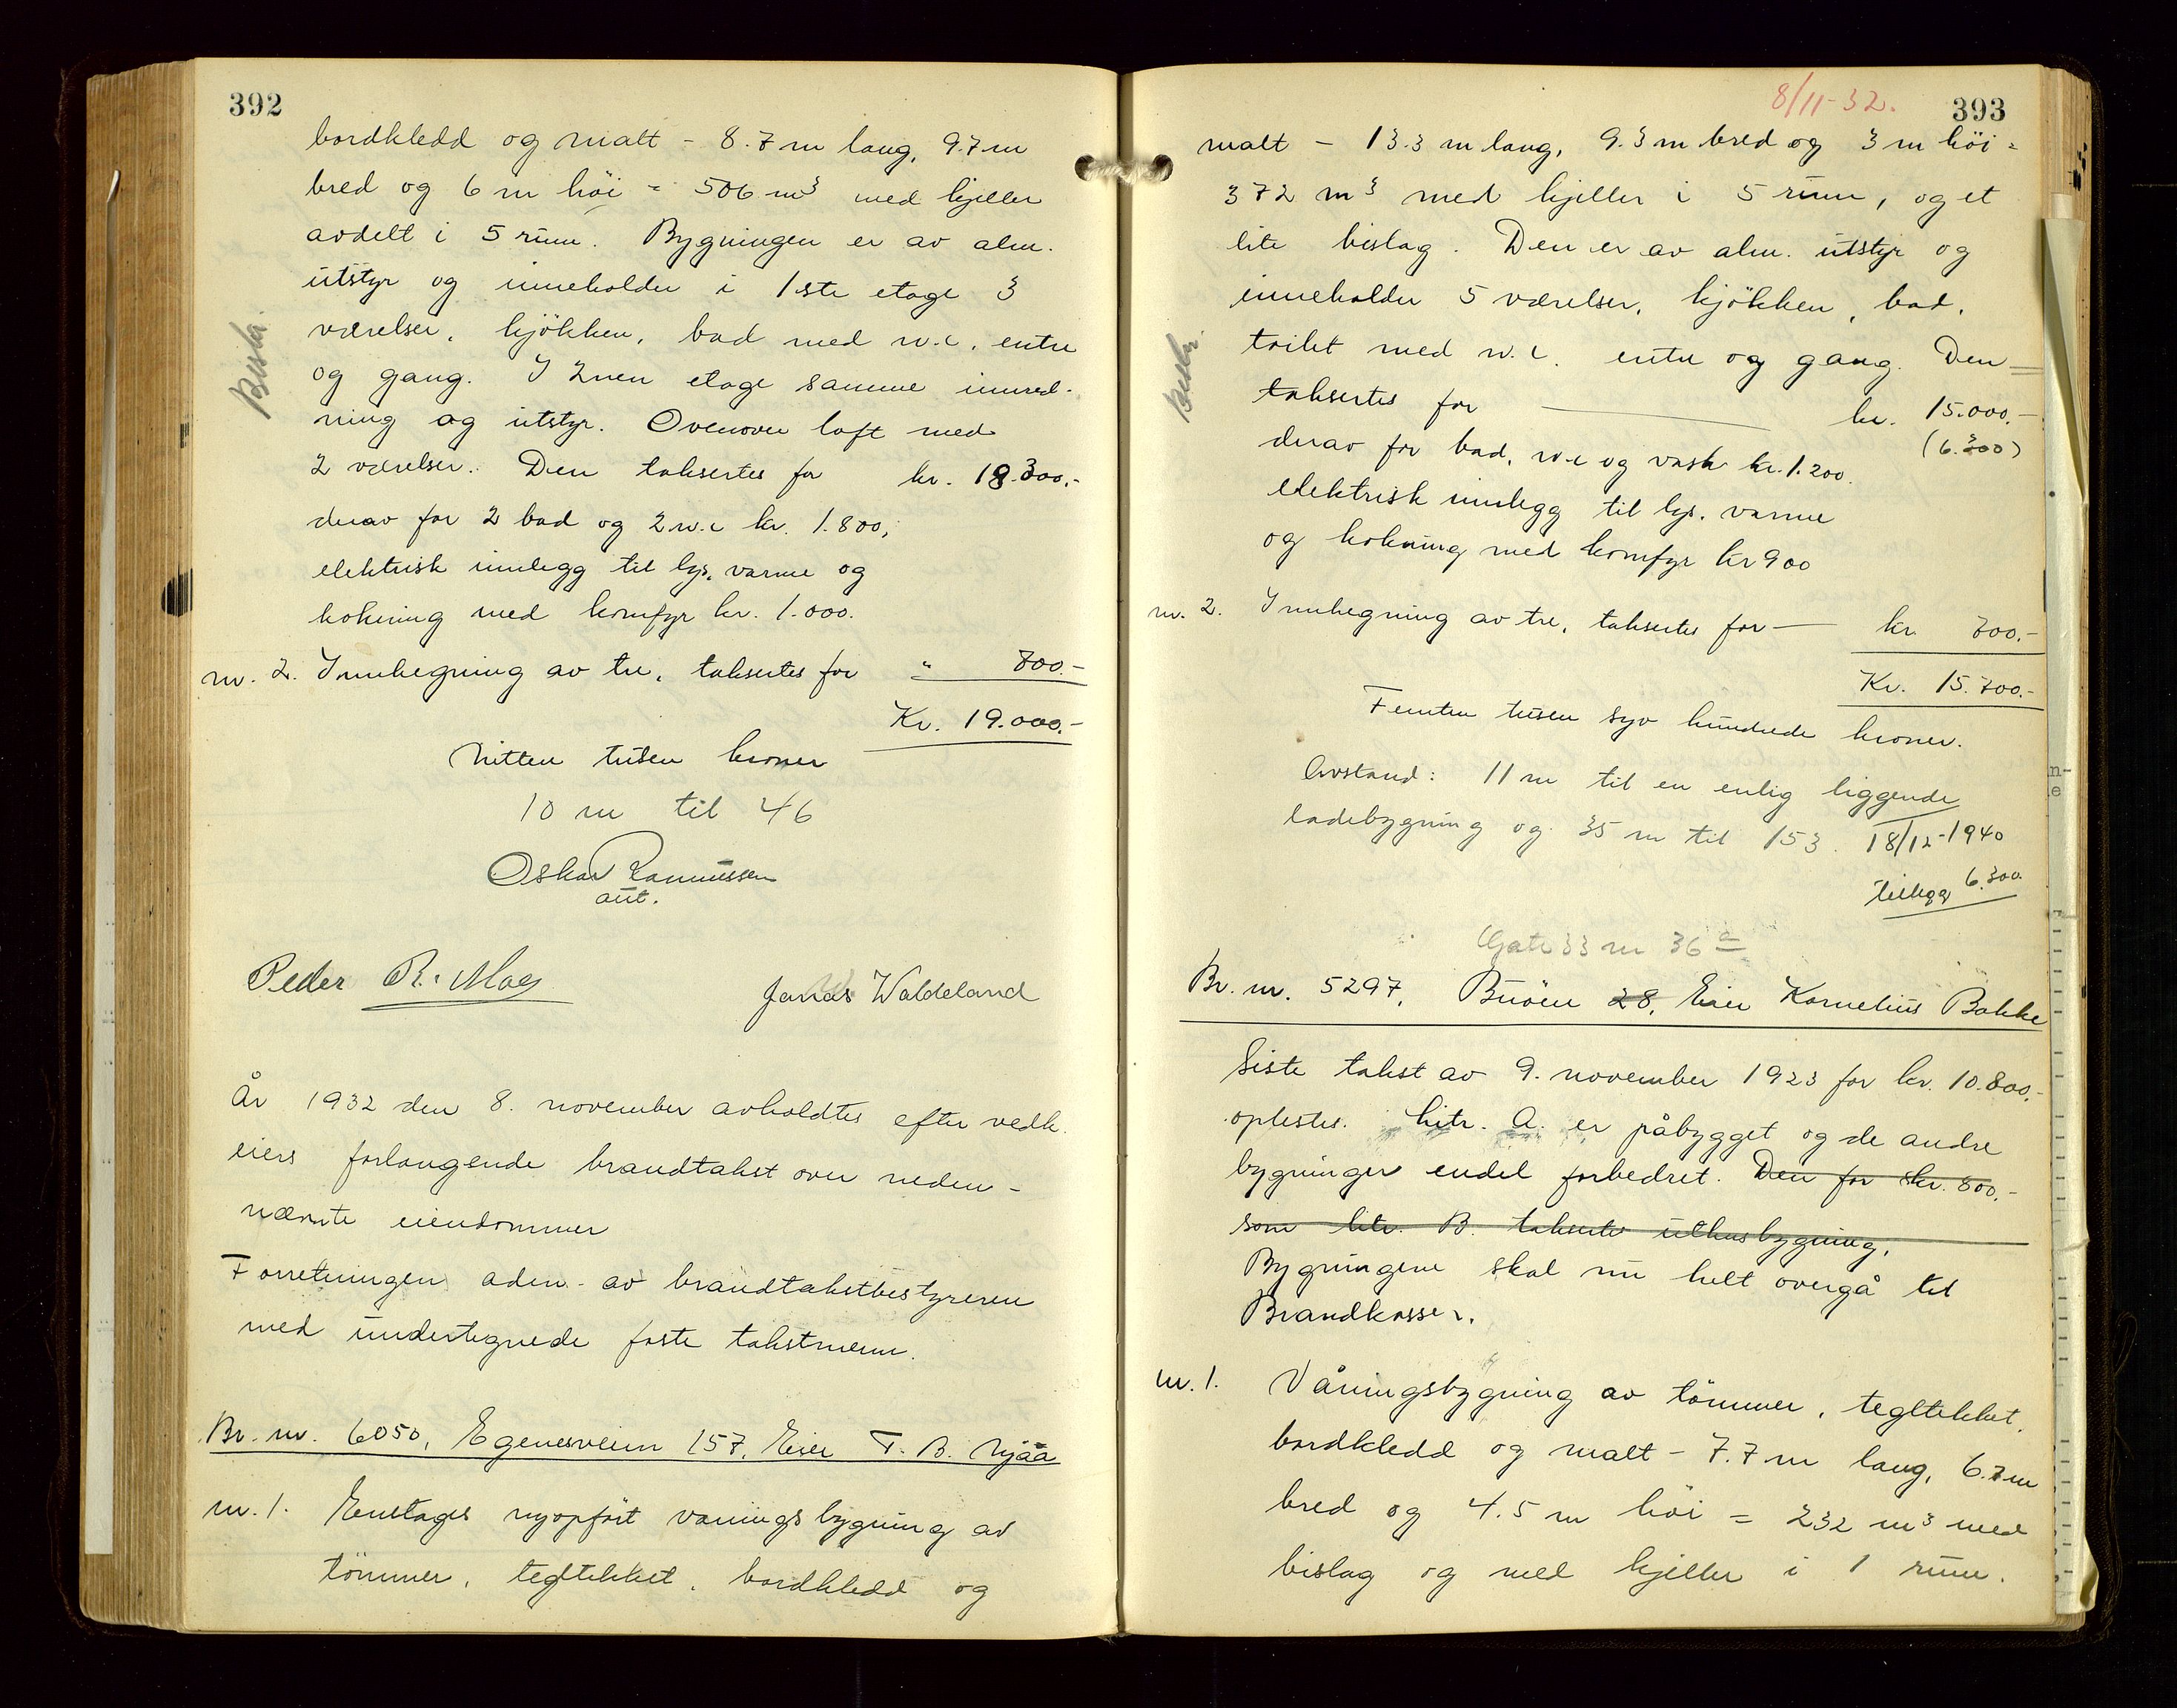 392
bordkledd og malt - 8.7 m lang, 9.7 m
bred og 6 m höi = 506 m³ med kjeller
avdelt i 5 rum. Bygningen er av alm.
utstyr og inneholder i 1ste etage 3
værelser, kjökken, bad med w.c. entre
og gang. I 2nen etage samme innred-
ning og utstyr. Ovenover loft med
2 værelser. Den taksertes for kr. 18.300.-
derav for 2 bad og 2 w.c kr. 1.800,
elektrisk innlegg til lys, varme og
kokning med komfyr kr. 1.000.
nr. 2. Innhegning av tre, taksertes for " 700.-
Kr. 19.000.-
Nitten tusen kroner
10 m til 46
Oskar Rasmussen
aut.
Peder R. Moe
Jonas Waldeland
År 1932 den 8. november avholdtes efter vedk.
eiers forlangende brandtakst over neden-
nævnte eiendommer
Forretningen adm. av brandtakstbestyreren
med undertegnede faste takstmenn.
Br. nr. 6050, Egenesveien 157, Eier T. B. Njaa
nr. 1. Enetages nyopfört våningsbygning av
tömmer, tegltekket, bordkledd og
8/11-32.
393
malt - 13.3 m lang, 9.3 m bred og 3 m höi =
372 m³ med kjeller i 5 rum, og et
lite bislag. Den er av alm. utstyr og
inneholder 5 værelser, kjökken, bad,
toilet med w.c. entre og gang. Den
taksertes for kr. 15.000.-
(6.300)
derav for bad, w.c og vask kr. 1.200.
elektrisk innlegg til lys, varme
og kokning med komfyr kr 900
nr. 2. Innhegning av tre, taksertes for kr. 700.-
Kr. 15.700.-
Femten tusen syv hundrede kroner.
Avstand: 11 m til en enlig liggende
ladebygning og 35 m til 153. 18/12-1940
tillegg 6.300.
Gate 33 m 36 a
Br. nr. 5297, Buöen 28, Eier Kornelius Bakke
Siste takst av 9. november 1923 for kr. 10.800.-
oplestes. Litr. A. er påbygget og de andre
bygninger endel forbedret. Den for kr. 800.-
som litr. B. takserte uthusbygning,
Bygningene skal nu helt overgå til
Brandkassen.
nr. 1. Våningsbygning av tömmer, tegltekket,
bordkledd og malt - 7.7 m lang, 6.7 m
bred og 4.5 m höi = 232 m³ med
bislag og med kjeller i 1 rum.